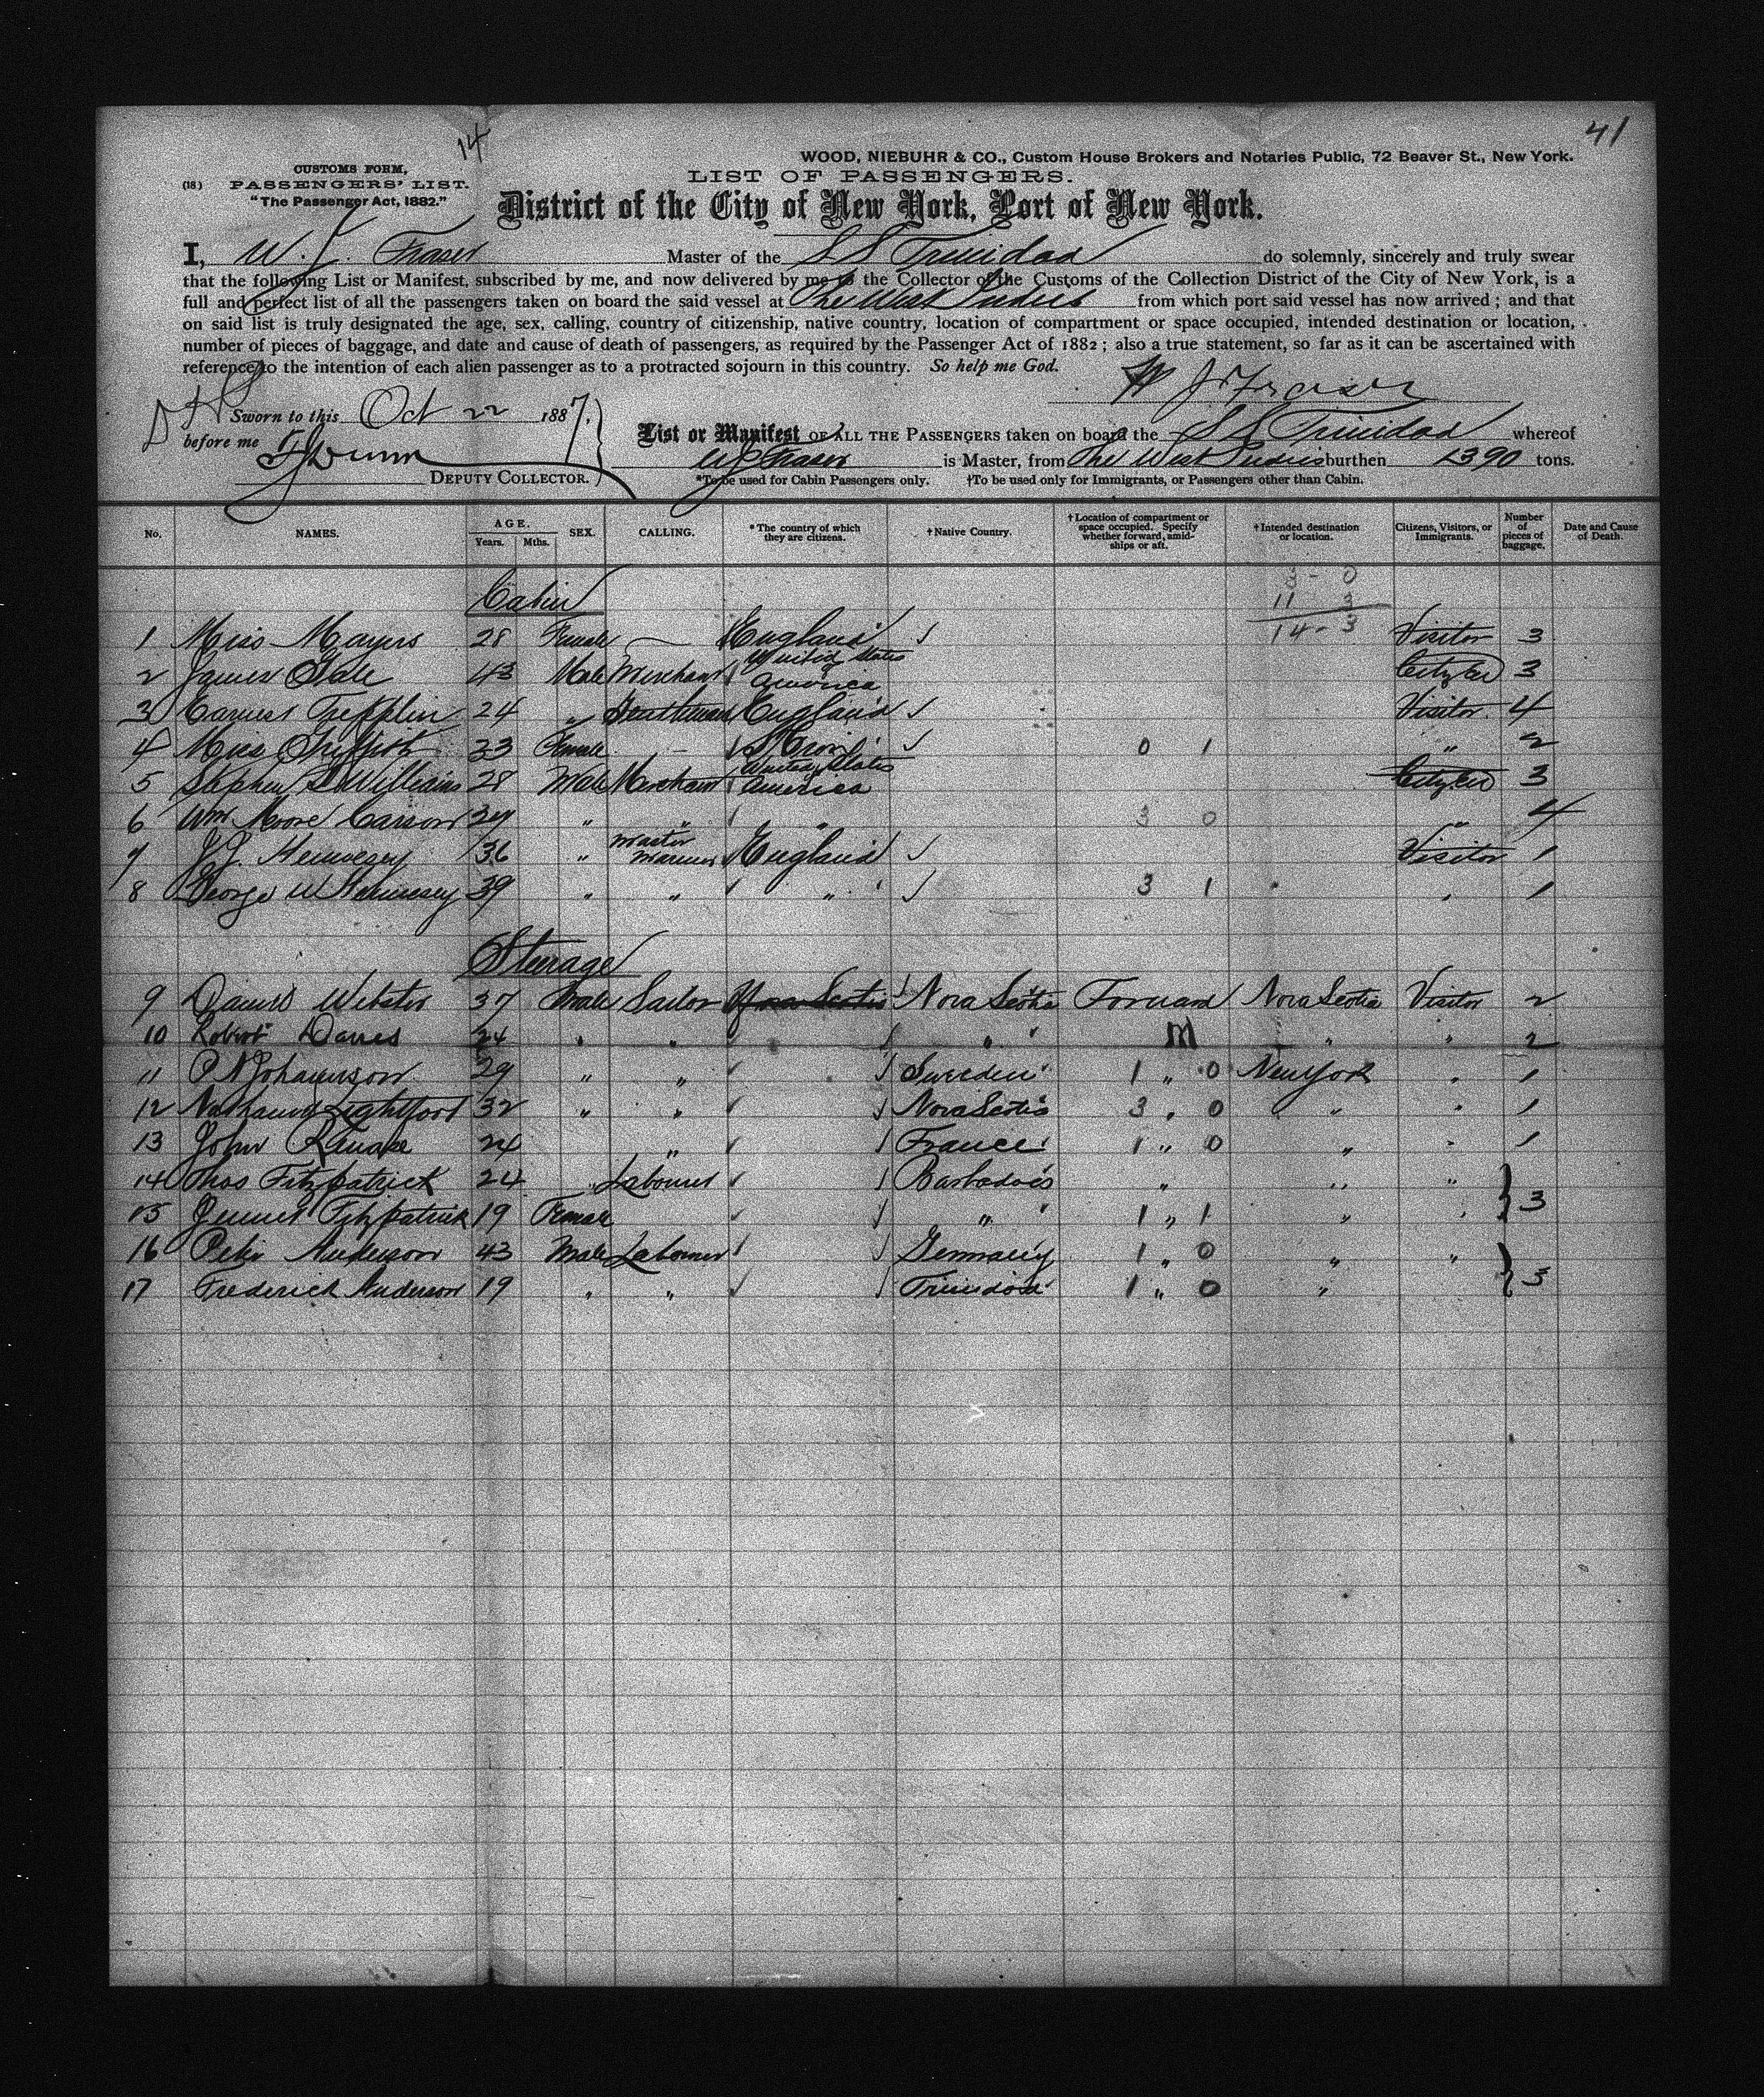 14
41
WOOD, NIEBUHR & CO., Custom House Brokers and Notaries Public, 72 Beaver St., New York.
CUSTOMS FORM,
(18) PASSENGERS' LIST.
"The Passenger Act, 1882."
LIST OF PASSENGERS.
District of the City of New York, Port of New York.
I, W. J. Fraser Master of the S S Trinidad do solemnly, sincerely and truly swear
that the following List or Manifest, subscribed by me, and now delivered by me to the Collector of the Customs of the Collection District of the City of New York, is a
full and perfect list of all the passengers taken on board the said vessel at The West Indies from which port said vessel has now arrived; and that
on said list is truly designated the age, sex, calling, country of citizenship, native country, location of compartment or space occupied, intended destination or location,
number of pieces of baggage, and date and cause of death of passengers, as required by the Passenger Act of 1882; also a true statement, so far as it can be ascertained with
reference to the intention of each alien passenger as to a protracted sojourn in this country. So help me God.
W J Fraser
Sworn to this Oct 22 1887.
before me
DEPUTY COLLECTOR.
List or Manifest OF ALL THE PASSENGERS taken on board the S S Trinidad whereof
W J Fraser is Master, from The West Indies burthen 1390 tons.
*To be used for Cabin Passengers only. †To be used only for Immigrants, or Passengers other than Cabin.
No. NAMES. AGE. Years. Mths. SEX. CALLING. *The country of which they are citizens. †Native Country. †Location of compartment or space occupied. Specify whether forward, amidships or aft. †Intended destination or location. Citizens, Visitors, or Immigrants. Number of pieces of baggage. Date and Cause of Death.
Cabin
11 3
14 - 3
1 Miss Mayers 28 Female — England Visitor 3
2 James Gale 43 Male Merchant United States of America Citizen 3
3 24 " Gentleman England Visitor 4
4 Miss Griffith 23 Female — St Croix 0 1 " 2
5 Stephen L Williams 28 Male Merchant United States America Citizen 3
6 Wm Moore Carson 24 " " " 3 0 " 4
7 J. J. Hennesey 36 " Master Mariner England Visitor 1
8 George W Hennesey 39 " " " 3 1 " 1
Steerage
9 Daniel Webster 37 Male Sailor Nova Scotia Nova Scotia Forward Nova Scotia Visitor 2
10 Robert Danes 24 " " " " " 2
11 P N Johannson 29 " " Sweden 1 " 0 New York " 1
12 Nathaniel Lightfoot 32 " " Nova Scotia 3 " 0 " " 1
13 John 24 " France 1 " 0 " " 1
14 Thos Fitzpatrick 24 " Labourer Barbadoes " " "
15 Fitzpatrick 19 Female " 1 " 1 " " 3
16 Peter Anderson 43 Male Labourer Germany 1 " 0 " "
17 Frederick Anderson 19 " " Trinidad 1 " 0 " 3